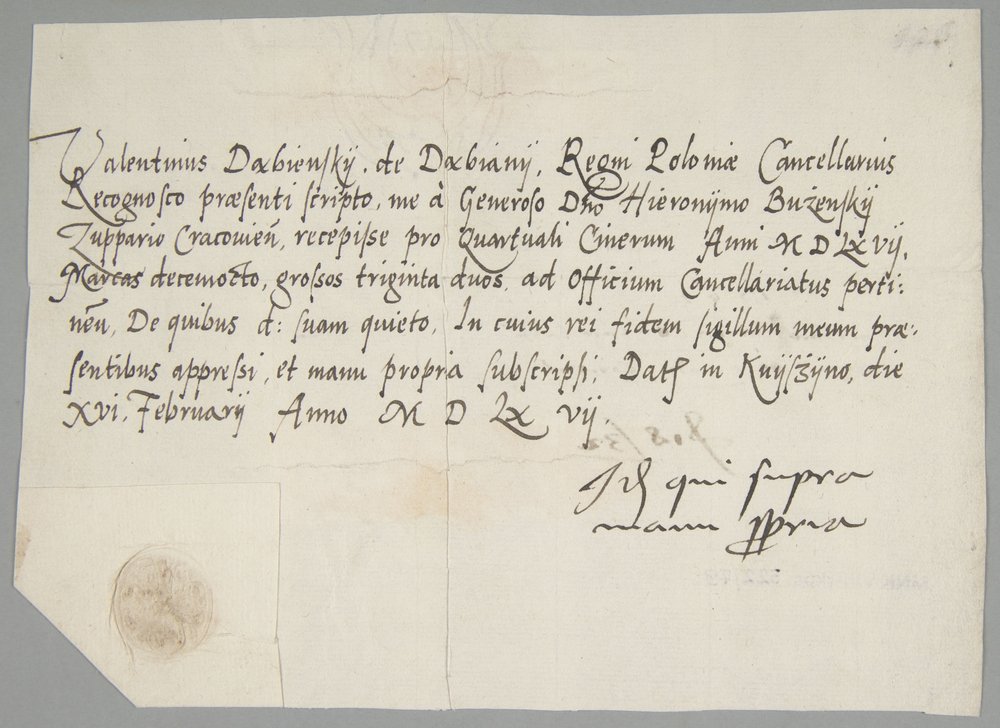 Valentinus Dabienskÿ, de Dabianÿ, Regni Poloniæ Cancellarius
Recognosco præsenti scripto, me à Generoso Dño Hieronÿmo Bużenskÿ
Zuppario Cracovieñ, recepisse pro Quartuali Cinerum Anni M D LX vij,
Marcas decemocto, grossos triginta duos, ad Officium Cancellariatus perti:
neñ, De quibus d: suam quieto, In cuius rei fidem sigillum meum præ:
sentibus appressi, et manu propria subscripsi, Dat in Knÿszÿno, die
XVI, Februarÿ Anno M D LX vij,
Id qui supra
manu ppria